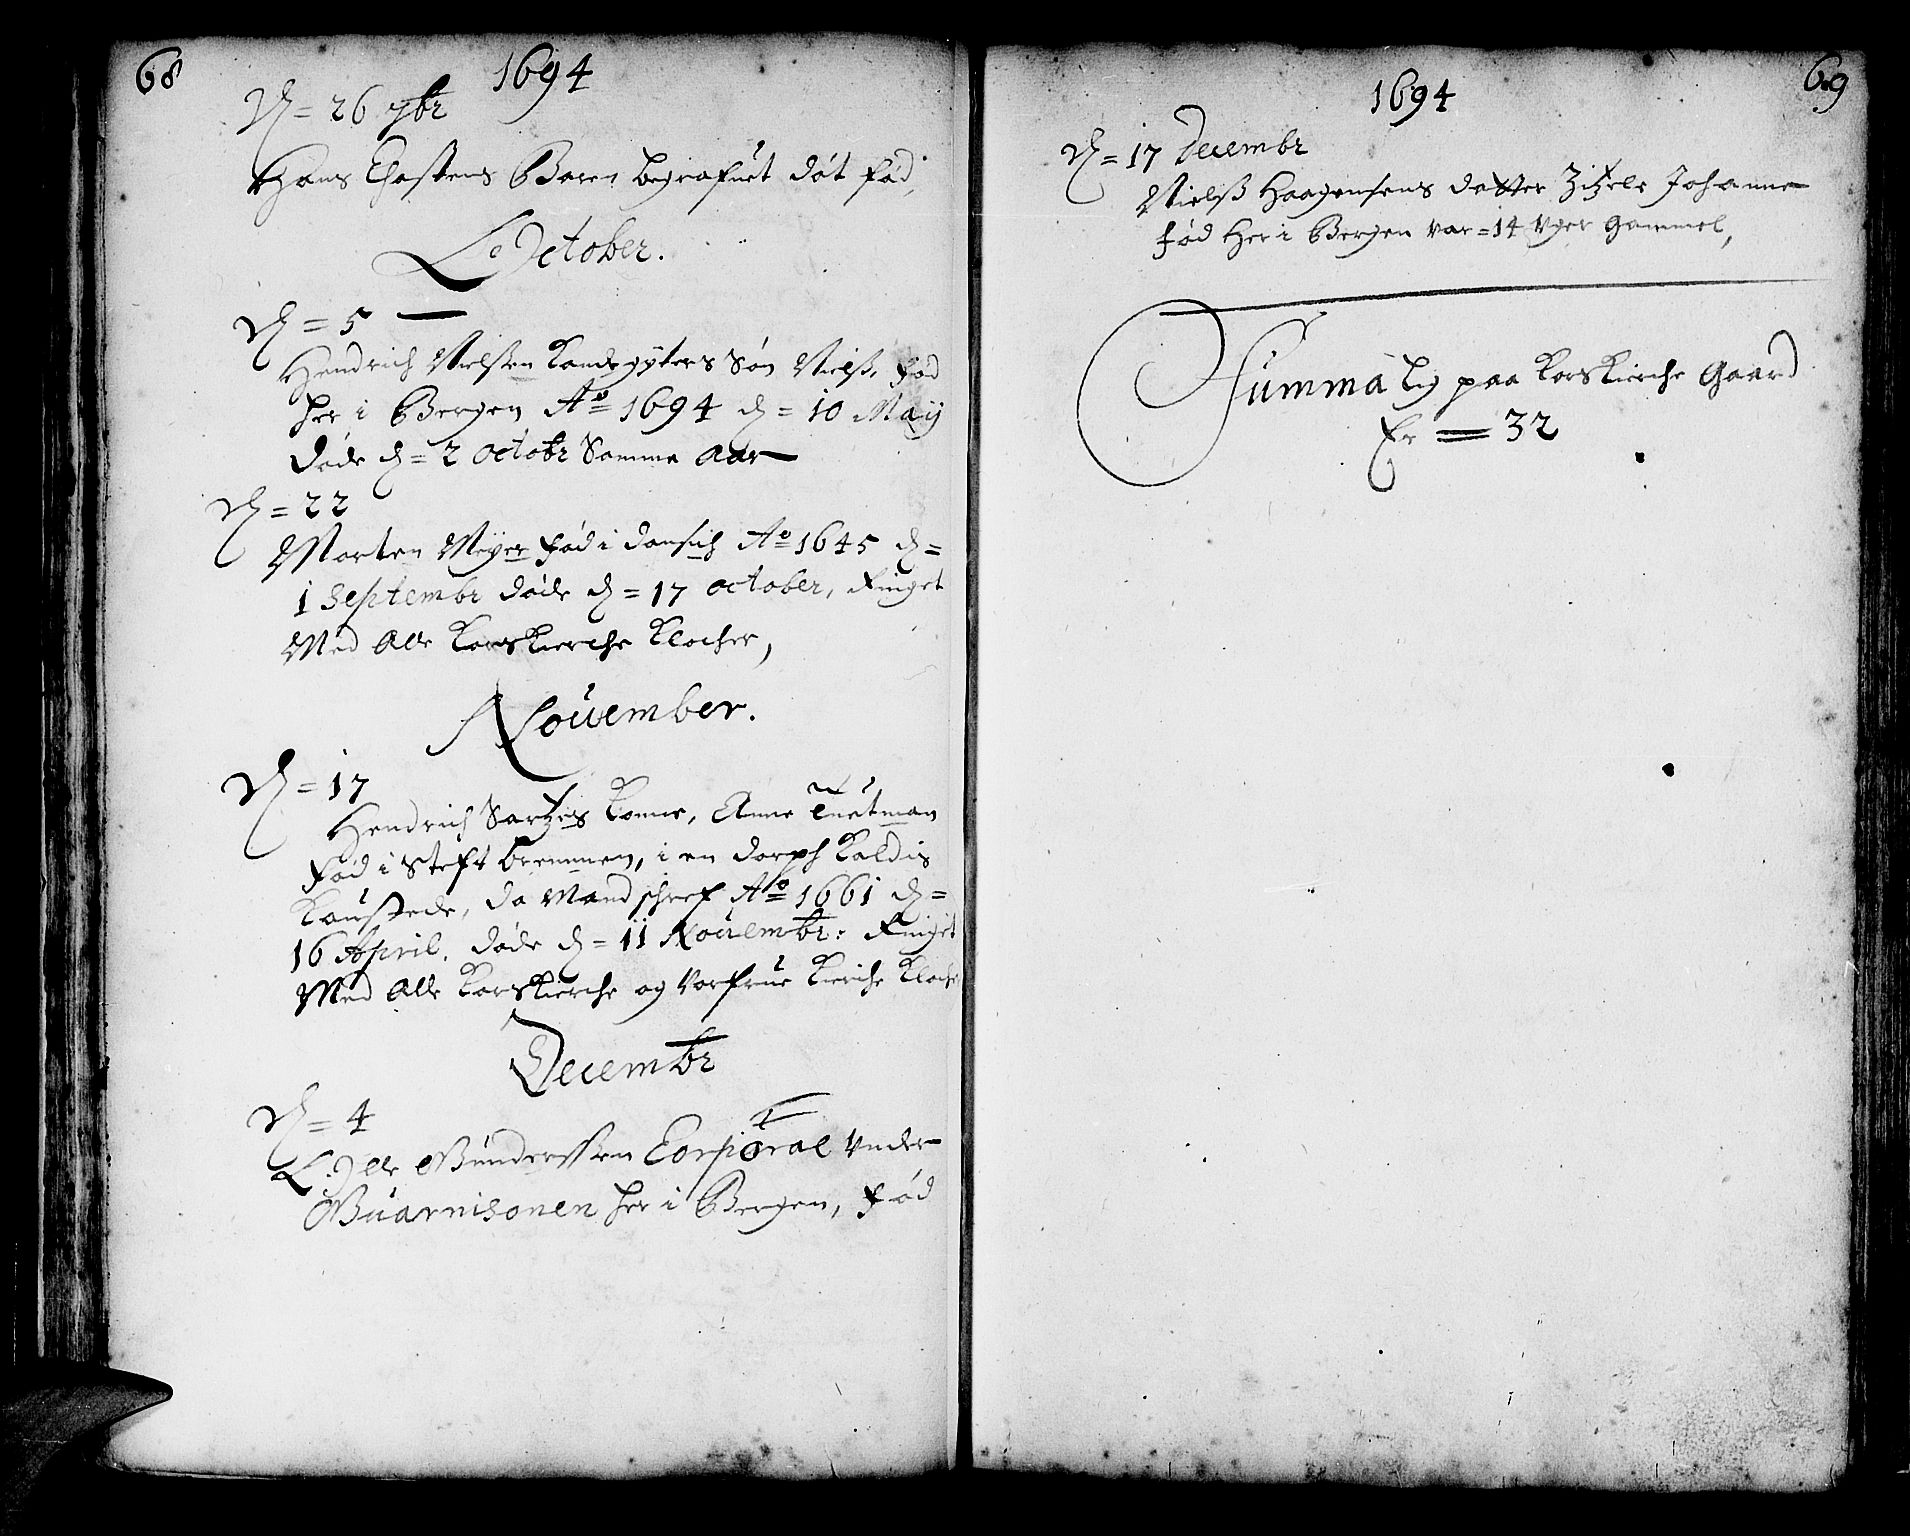 68
1694
D = 26 7br
Hans Chastens Baren begrafuet døt fød,
October.
D = 5 —
Hendrich Nielssen Kandegyters Søn Nielss, fød
her i Bergen Ao 1694 d = 10 Maij
døde d = 2 octobr Samme Aar
D = 22
Morten Meyer fød i dansich Ao 1645 d =
1 Septembr døde d = 17 october, Ringet
Med Alle Korskierche Klocher,
Nouember.
D = 17
Hendrich Sartzes Konne, Anne
fød i Steft bremmen, i en dorph Kaldis
Kaustede, da Mand schref Ao 1661 d =
16 April. døde d = 11 Nouembr: Ringet
Med Alle Korskierche og Vorfrue Kierche Kloche
Decembr
D = 4
Olle Gunderssen Corporal Vnder
Guarnisonen her i Bergen, fød
69
1694
D = 17 Decembr
Nielss Haagensens datter Zitzele Johanne
fød Her i Bergen var = 14 Vger Gammel,
Summa Lig paa Korskierche Gaard
Er = 32